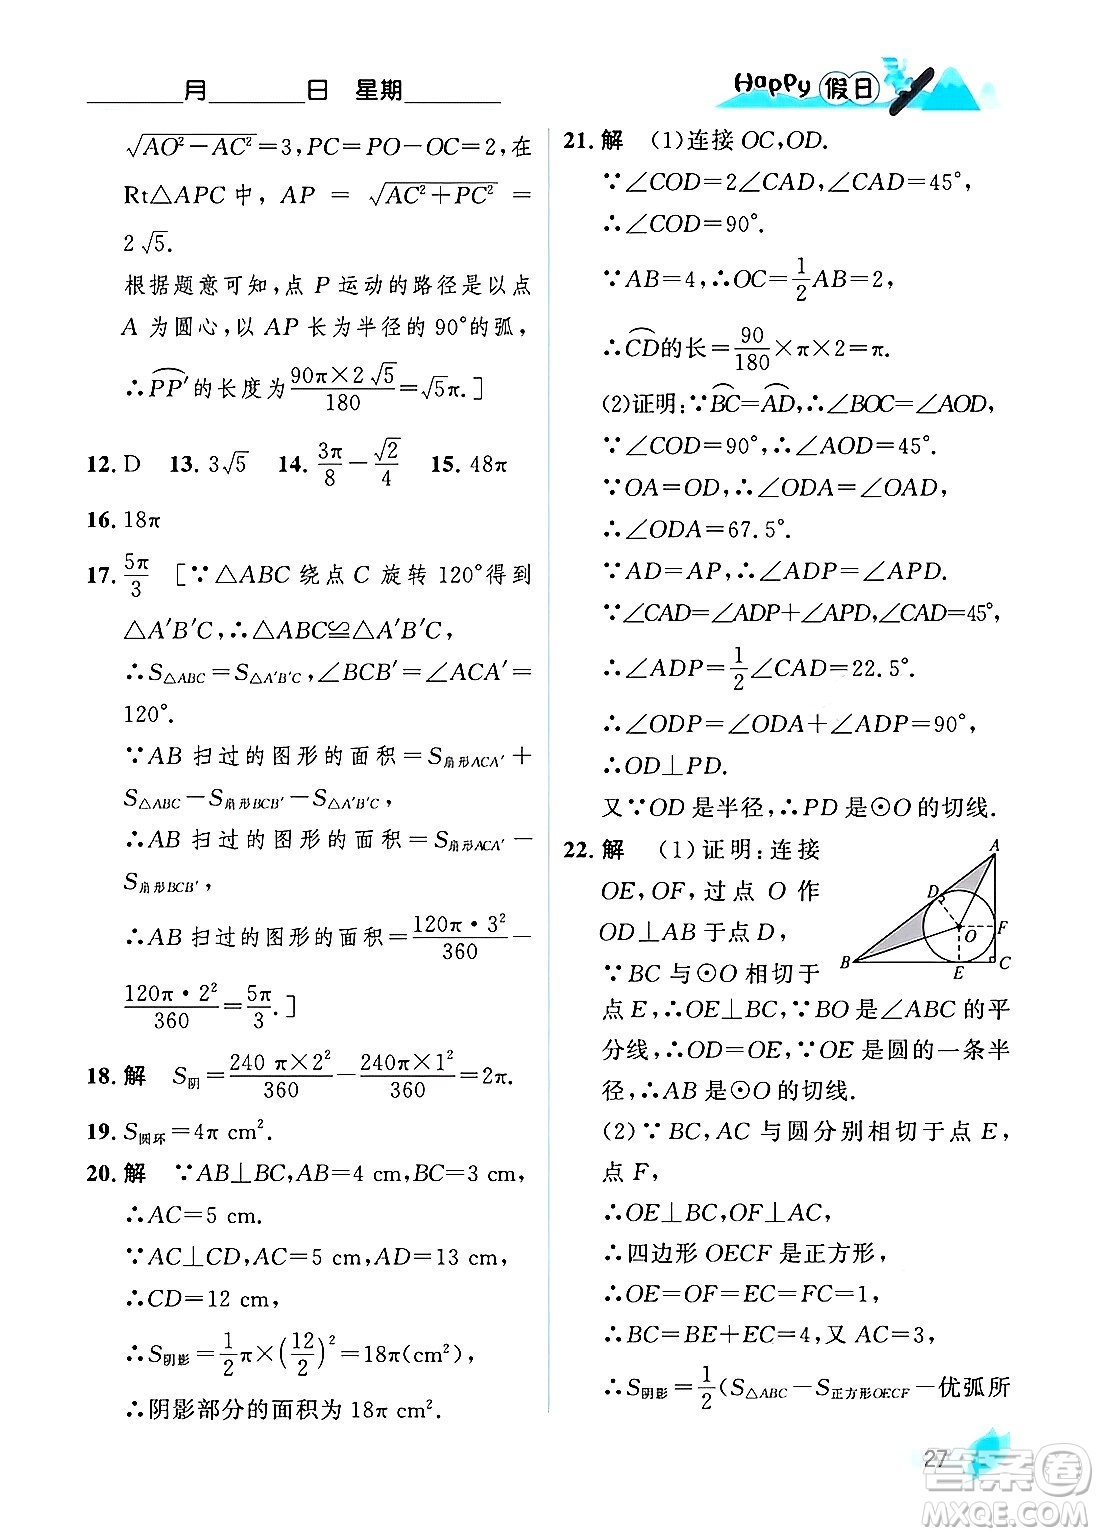 ______月______日 星期______
Happy 假日
√(AO²－AC²)＝3,PC＝PO－OC＝2,在
Rt△APC中,AP＝√(AC²＋PC²)＝
2√5.
根据题意可知,点 P 运动的路径是以点
A 为圆心,以 AP 长为半径的 90°的弧,
∴⌒PP′的长度为(90π×2√5)/180＝√5π.]
12. D 13. 3√5 14. 3π/8－√2/4 15. 48π
16. 18π
17. 5π/3 [∵△ABC 绕点 C 旋转 120°得到
△A′B′C,∴△ABC≌△A′B′C,
∴S△ABC＝S△A′B′C,∠BCB′＝∠ACA′＝
120°.
∵AB 扫过的图形的面积＝S扇形ACA′＋
S△ABC－S扇形BCB′－S△A′B′C,
∴AB 扫过的图形的面积＝S扇形ACA′－
S扇形BCB′,
∴AB 扫过的图形的面积＝(120π·3²)/360－
(120π·2²)/360＝5π/3.]
18. 解 S阴＝(240π×2²)/360－(240π×1²)/360＝2π.
19. S圆环＝4π cm².
20. 解 ∵AB⊥BC,AB＝4 cm,BC＝3 cm,
∴AC＝5 cm.
∵AC⊥CD,AC＝5 cm,AD＝13 cm,
∴CD＝12 cm,
∴S阴影＝1/2π×(12/2)²＝18π(cm²),
∴阴影部分的面积为 18π cm².
21. 解 (1)连接 OC,OD.
∵∠COD＝2∠CAD,∠CAD＝45°,
∴∠COD＝90°.
∵AB＝4,∴OC＝1/2AB＝2,
∴⌒CD的长＝90/180×π×2＝π.
(2)证明:∵⌒BC＝⌒AD,∴∠BOC＝∠AOD,
∵∠COD＝90°,∴∠AOD＝45°.
∵OA＝OD,∴∠ODA＝∠OAD,
∴∠ODA＝67.5°.
∵AD＝AP,∴∠ADP＝∠APD.
∵∠CAD＝∠ADP＋∠APD,∠CAD＝45°,
∴∠ADP＝1/2∠CAD＝22.5°.
∴∠ODP＝∠ODA＋∠ADP＝90°,
∴OD⊥PD.
又∵OD 是半径,∴PD 是⊙O 的切线.
22. 解 (1)证明:连接
OE,OF,过点 O 作
OD⊥AB 于点 D,
∵BC 与⊙O 相切于
点 E,∴OE⊥BC,∵BO 是∠ABC 的平
分线,∴OD＝OE,∵OE 是圆的一条半
径,∴AB 是⊙O 的切线.
A
D
O
F
B
E
C
(2)∵BC,AC 与圆分别相切于点 E,
点 F,
∴OE⊥BC,OF⊥AC,
∴四边形 OECF 是正方形,
∴OE＝OF＝EC＝FC＝1,
∴BC＝BE＋EC＝4,又 AC＝3,
∴S阴影＝1/2(S△ABC－S正方形OECF－优弧所
27
答案圈
MXQE.COM